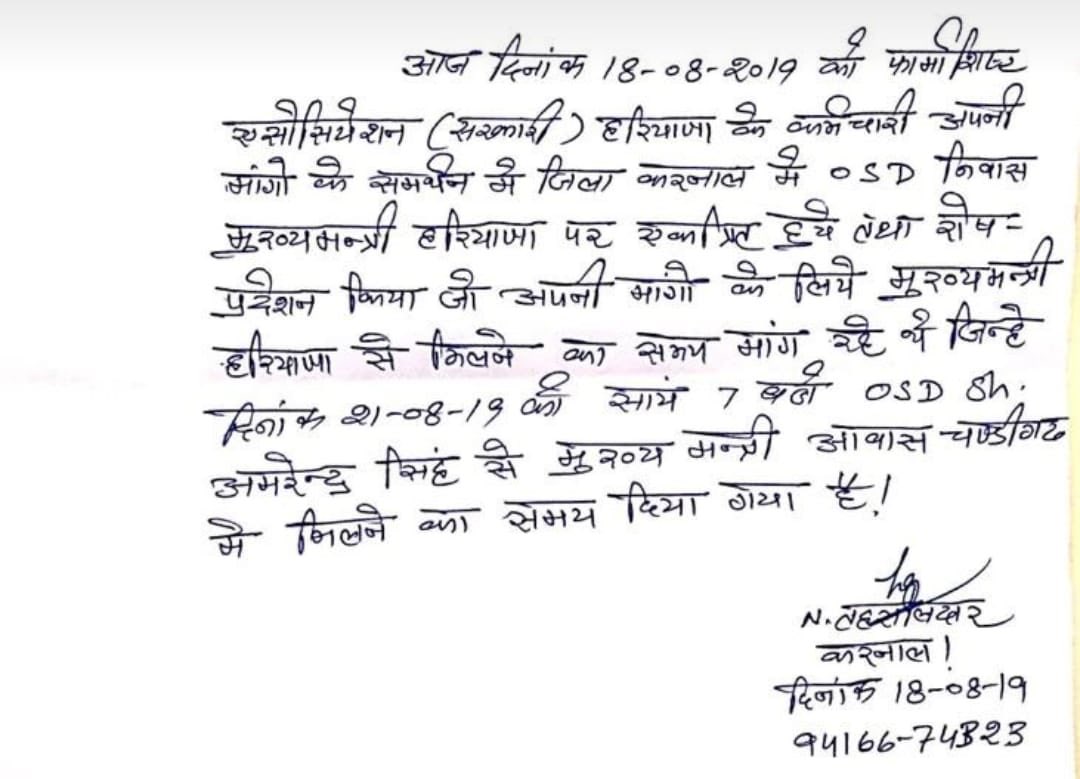 आज दिनांक 18-08-2019 को फार्मासिस्ट
एसोसियेशन (सरकारी) हरियाणा के कर्मचारी अपनी
मांगो के समर्थन मे जिला करनाल मे OSD निवास
मुख्यमन्त्री हरियाणा पर एकत्रित हुये तथा रोष-
प्रदेशन किया जो अपनी मांगो के लिये मुख्यमन्त्री
हरियाणा से मिलने का समय मांग रहे थे जिन्हे
दिनांक 21-08-19 को सायं 7 बजे OSD Sh.
अमरेन्द्र सिंह से मुख्य मन्त्री आवास चण्डीगढ
मे मिलने का समय दिया गया है!
N. तहसीलदार
करनाल!
दिनांक 18-08-19
94166-74323